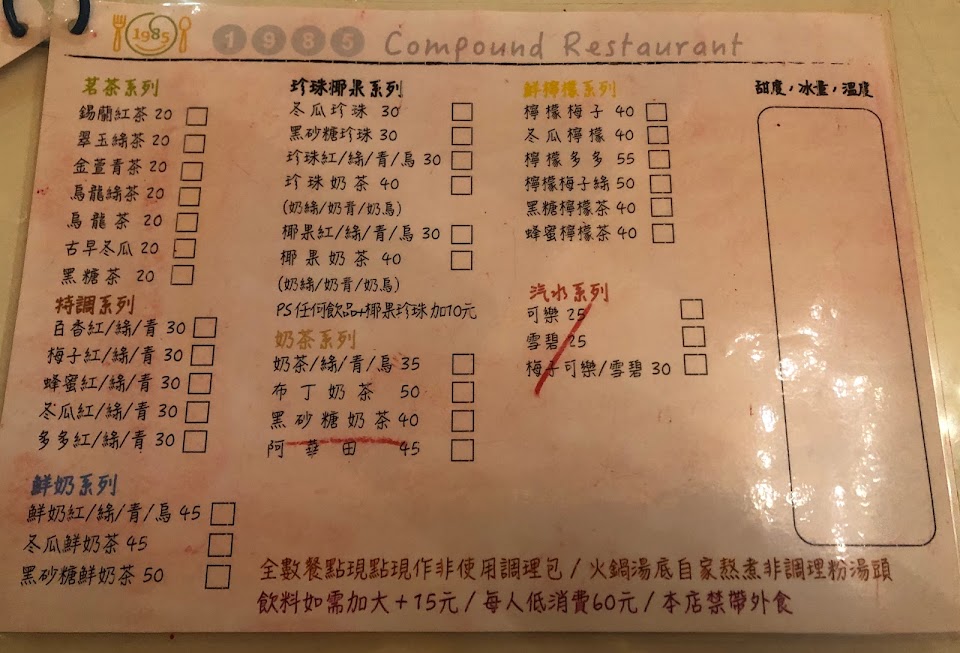 1985
1985 Compound Restaurant
茗茶系列
錫蘭紅茶 20
翠玉綠茶 20
金萱青茶 20
烏龍綠茶 20
烏龍茶 20
古早冬瓜 20
黑糖茶 20
特調系列
百香紅/綠/青 30
梅子紅/綠/青 30
蜂蜜紅/綠/青 30
冬瓜紅/綠/青 30
多多紅/綠/青 30
鮮奶系列
鮮奶紅/綠/青/烏 45
冬瓜鮮奶茶 45
黑砂糖鮮奶茶 50
珍珠椰果系列
冬瓜珍珠 30
黑砂糖珍珠 30
珍珠紅/綠/青/烏 30
珍珠奶茶 40
(奶綠/奶青/奶烏)
椰果紅/綠/青/烏 30
椰果奶茶 40
(奶綠/奶青/奶烏)
PS任何飲品+椰果珍珠加10元
奶茶系列
奶茶/綠/青/烏 35
布丁奶茶 50
黑砂糖奶茶 40
阿華田 45
鮮檸檬系列
檸檬梅子 40
冬瓜檸檬 40
檸檬多多 55
檸檬梅子綠 50
黑糖檸檬茶 40
蜂蜜檸檬茶 40
汽水系列
可樂 25
雪碧 25
梅子可樂/雪碧 30
甜度,冰量,溫度
全數餐點現點現作非使用調理包/火鍋湯底自家熬煮非調理粉湯頭
飲料如需加大+15元/每人低消費60元/本店禁帶外食